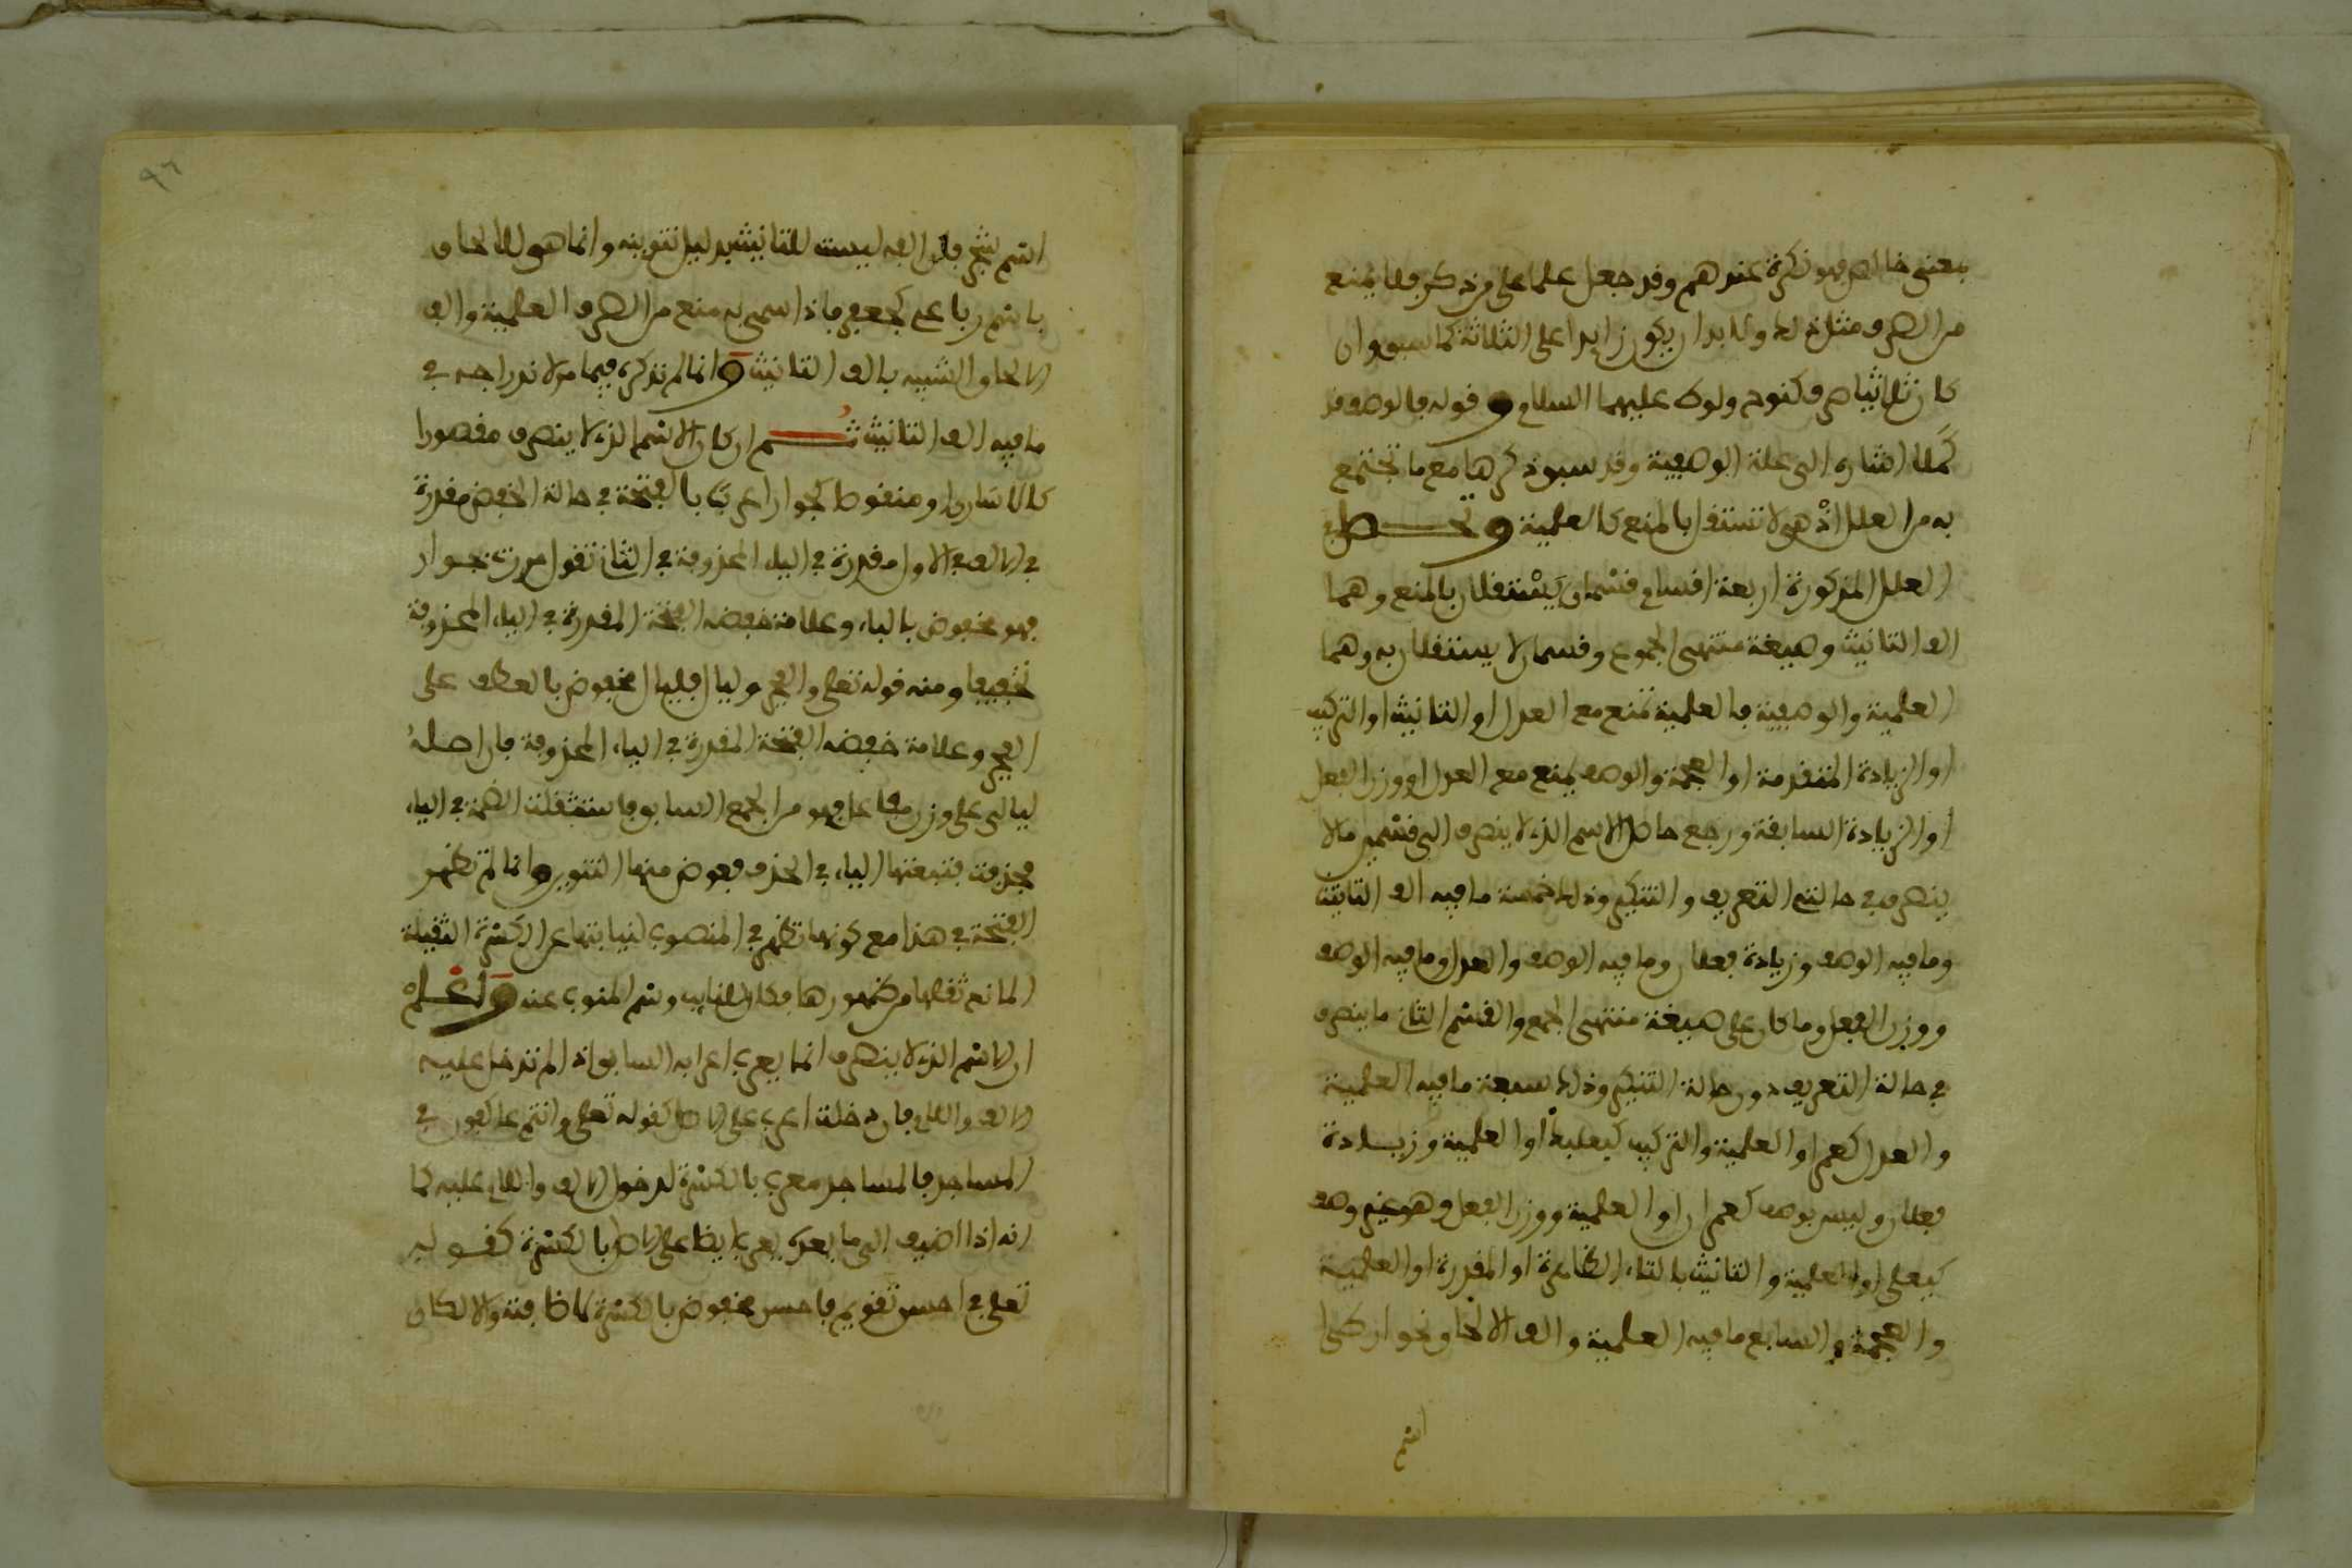 بمعنى خالص فهو نكرة عندهم وقد جعل علما على مذكر فلا يمنع
من الصرف مثل ذلك ولا بد ان يكون زايدا على الثلاثة كما سبق وان
كان ثلاثيا صرف كنوح ولوط عليهما السلام وقوله فالوصف قد
كملا اشارة الى علة الوصفية وقد سبق ذكرها مع ما تجتمع
به من العلل اذ هي لا تستقل بالمنع كالعلمية وتحصل في
العلل المذكورة اربعة اقسام قسمان يستقلان بالمنع وهما
الف التانيث وصيغة منتهى الجموع وقسمان لا يستقلان به وهما
العلمية والوصفية فالعلمية تمنع مع العدل او التانيث او التركيب
او الزيادة المتقدمة او العجمة والوصف يمنع مع العدل او وزن الفعل
او الزيادة السابقة ورجع حاصل الاسم الذي لا ينصرف الى قسمين ما لا
ينصرف في حالتي التعريف والتنكير وذلك خمسة ما فيه الف التانيث
وما فيه الوصف وزيادة فعلان وما فيه الوصف والعدل وما فيه الوصف
ووزن الفعل وما كان على صيغة منتهى الجمع والقسم الثاني ما ينصرف
في حالة التعريف دون حالة التنكير وذلك سبعة ما فيه العلمية
والعدل كعمر او العلمية والتركيب كبعلبك او العلمية وزيادة
فعلان وليس بوصف كعمران او العلمية ووزن الفعل وهو غير وصف
كيعلى او العلمية والتانيث بالتاء الظاهرة او المقدرة او العلمية
والعجمة والسابع ما فيه العلمية والف الالحاق نحو ارطى
اسم
٩٦
اسم شجر فان الفه ليست للتانيث بدليل تنوينه وانما هو للالحاق
باسم رباعي كجعفر فاذا سمي به منع من الصرف العلمية والف
الالحاق الشبيه بالف التانيث وانما لم نذكره فيما مر لاندراجه في
ما فيه الف التانيث ثم ان كان الاسم الذي لا ينصرف مقصورا
كالاسارى او منقوط كجوار اعرب بالفتحة في حالة الخفض مقدرة
في الالف في الاول مقدرة في الياء المحذوفة في الثاني تقول مررت بجوار
فهو مخفوض بالباء وعلامة خفضه الفتحة المقدرة في الياء المحذوفة
تخفيفا ومنه قوله تعلى والفجر وليال فليال مخفوض بالعطف على
الفجر وعلامة خفضه الفتحة المقدرة في الياء المحذوفة فان اصله
ليالي على وزن مفاعل فهو من الجمع السابق فاستثقلت الضمة في الياء
فحذفت فتبعتها الياء في الحذف فعوض منها التنوين وانما لم تظهر
الفتحة في هذا مع كونها تظهر في المنصوب لنيابتها عن الكسرة الثقيلة
المانع ثقلها من ظهورها فكان للنايب وسم المنوب عنه واعلم
ان الاسم الذي لا ينصرف انما يعرب اعرابه السابق اذا لم تدخل عليه
الالف واللام فان دخلت اعرب على الاصل كقوله تعلى وانتم عاكفون في
المساجد فالمساجد معرب بالكسرة لدخول الالف واللام عليه كما
انه اذا اضيف الى ما بعده يعرب ايضا على الاصل بالكسرة كقوله
تعلى في احسن تقويم فاحسن مخفوض بالكسرة لاضافته والا لكان